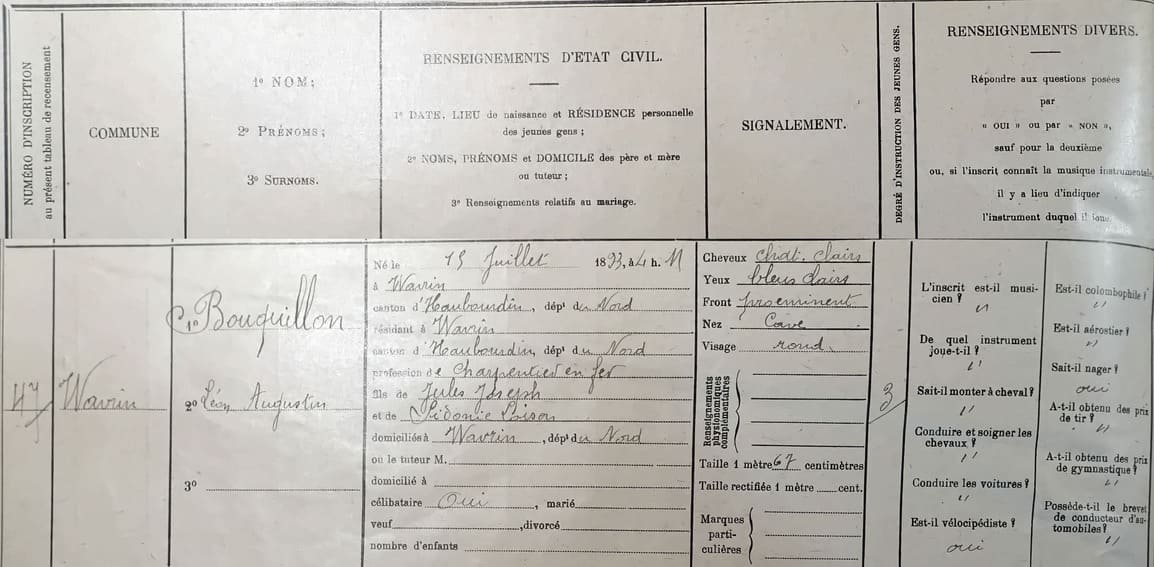 NUMÉRO D'INSCRIPTION
au présent tableau de recensement
COMMUNE
1º NOM;
2º PRÉNOMS;
3º SURNOMS.
RENSEIGNEMENTS D'ETAT CIVIL.
1º DATE, LIEU de naissance et RÉSIDENCE personnelle
des jeunes gens;
2º NOMS, PRÉNOMS et DOMICILE des père et mère
ou tuteur;
3º Renseignements relatifs au mariage.
SIGNALEMENT.
DEGRÉ D'INSTRUCTION DES JEUNES GENS.
RENSEIGNEMENTS DIVERS.
Répondre aux questions posées
par
« OUI » ou par « NON »,
sauf pour la deuxième
ou, si l'inscrit connaît la musique instrumentale,
il y a lieu d'indiquer
l'instrument duquel il joue.
47
Wavrin
1º Bouquillon
2º Léon Augustin
3º
Né le 15 Juillet 1893, à 4 h. M
à Wavrin
canton d'Haubourdin, dépt du Nord
résidant à Wavrin
canton d'Haubourdin, dépt du Nord
profession de Charpentier en fer
fils de Jules Joseph
et de Sidonie Loison
domiciliés à Wavrin, dépt du Nord
ou le tuteur M.
domicilié à
célibataire Oui, marié
veuf, divorcé
nombre d'enfants
Cheveux Chât. Clairs
Yeux bleus clairs
Front proéminent
Nez Cave
Visage rond
Renseignements
physionomiques
complémentaires
Taille 1 mètre 67 centimètres
Taille rectifiée 1 mètre cent.
Marques
parti-
culières
3
L'inscrit est-il musi-
cien?
"
De quel instrument
joue-t-il?
"
Sait-il monter à cheval?
"
Conduire et soigner les
chevaux?
"
Conduire les voitures?
"
Est-il vélocipédiste?
oui
Est-il colombophile?
"
Est-il aérostier?
"
Sait-il nager?
oui
A-t-il obtenu des prix
de tir?
"
A-t-il obtenu des prix
de gymnastique?
"
Possède-t-il le brevet
de conducteur d'au-
tomobiles?
"